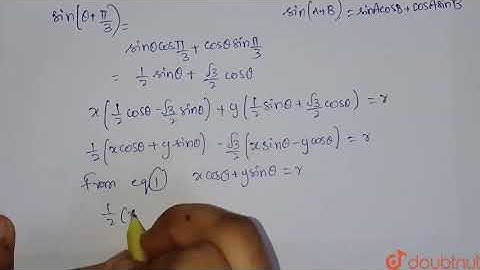 sin(θ+π/3)= sin(A+B)=sinAcosB+cosAsinB
sinθcosπ/3+cosθsinπ/3
= 1/2 sinθ+√3/2 cosθ
x(1/2 cosθ-√3/2 sinθ)+y(1/2 sinθ+√3/2 cosθ)=r
1/2(xcosθ+ysinθ) -√3/2(xsinθ-ycosθ)=r
From eq① xcosθ+ysinθ=r
1/2(
doubtnut